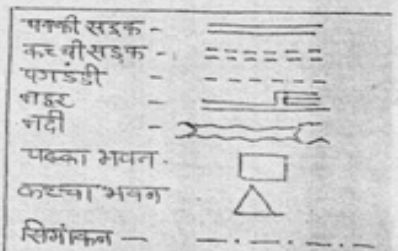 पक्की सड़क -
कच्ची सड़क -
पगडंडी -
नहर -
नदी -
पक्का भवन -
कच्चा भवन
सिमांकन -